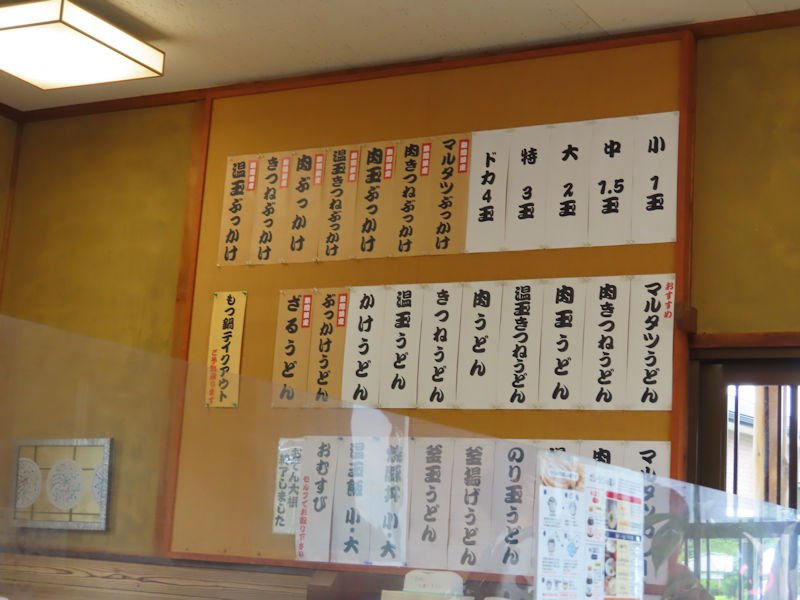 小 1玉
中 1.5玉
大 2玉
特 3玉
ドカ 4玉
マルタツぶっかけ
期間限定 肉きつねぶっかけ
期間限定 肉玉ぶっかけ
期間限定 温玉きつねぶっかけ
期間限定 肉ぶっかけ
期間限定 きつねぶっかけ
期間限定 温玉ぶっかけ
おすすめ マルタツうどん
肉きつねうどん
肉玉うどん
温玉きつねうどん
肉うどん
きつねうどん
温玉うどん
かけうどん
期間限定 ぶっかけうどん
期間限定 ざるうどん
もつ鍋テイクアウト
ご予約承ります
マルタツ
肉
のり玉うどん
釜揚げうどん
釜玉うどん
焼豚丼 小・大
温玉飯 小・大
おむすび
セルフでお取り下さい
おでん大根
終了しました